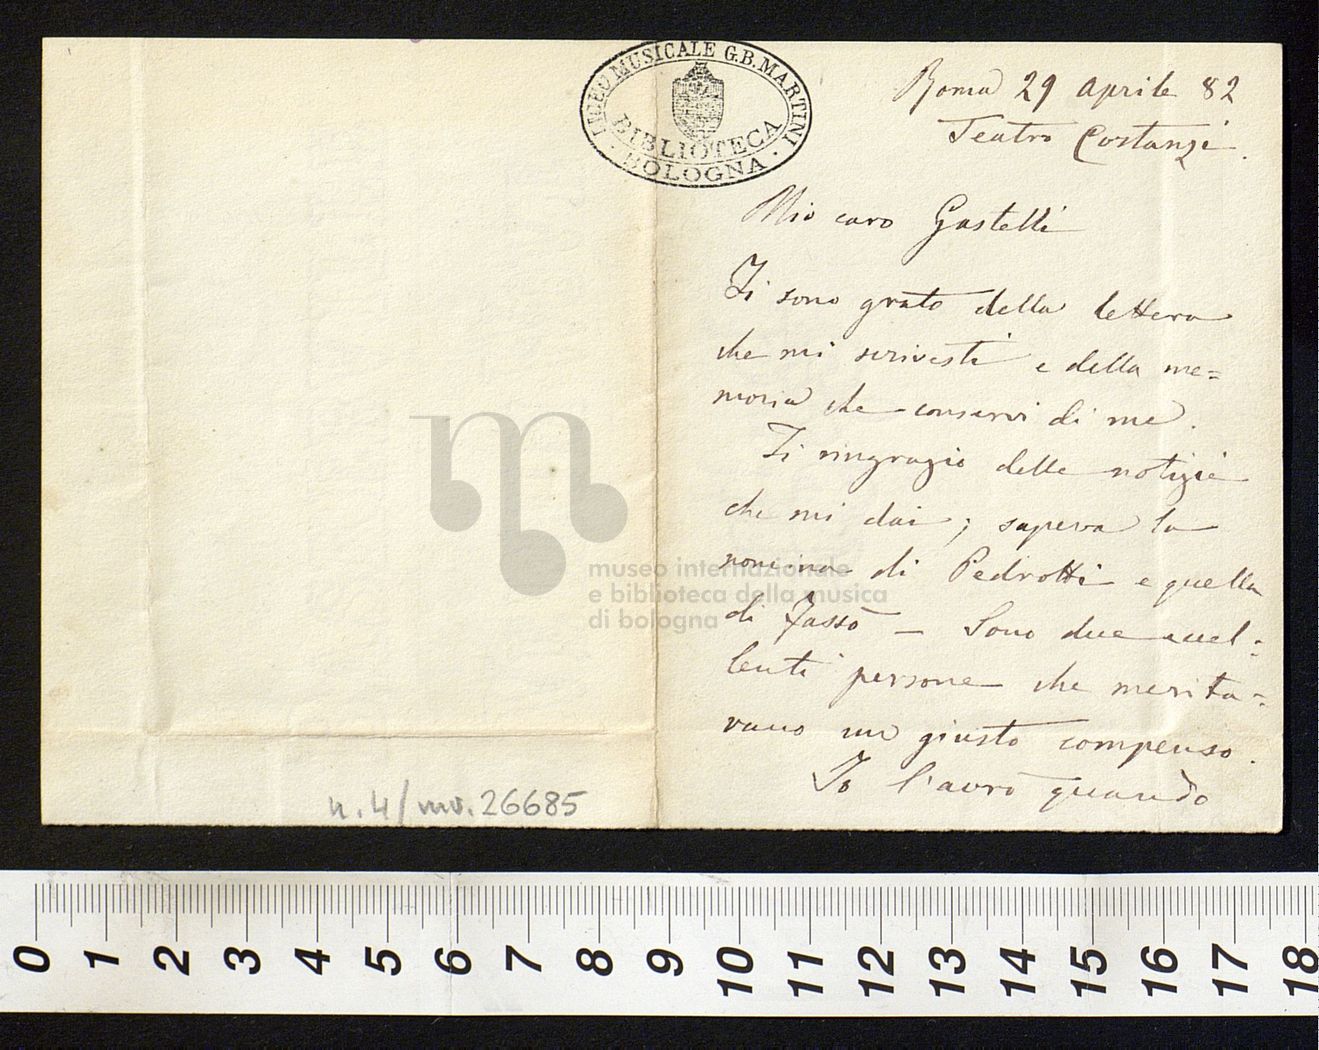 LICEO MUSICALE G.B. MARTINI
BIBLIOTECA
· BOLOGNA ·
Roma 29 aprile 82
Teatro Costanzi.
Mio caro Gastelli
Ti sono grato della lettera
che mi scrivesti e della me=
moria che conservi di me.
Ti ringrazio delle notizie
che mi dai; sapeva la
nomina di Pedrotti e quella
di Fasso – Sono due eccel=
lenti persone che merita=
vano un giusto compenso.
Io l'avrò quando
museo internazionale
e biblioteca della musica
di bologna
n.4/inv.26685
0 1 2 3 4 5 6 7 8 9 10 11 12 13 14 15 16 17 18